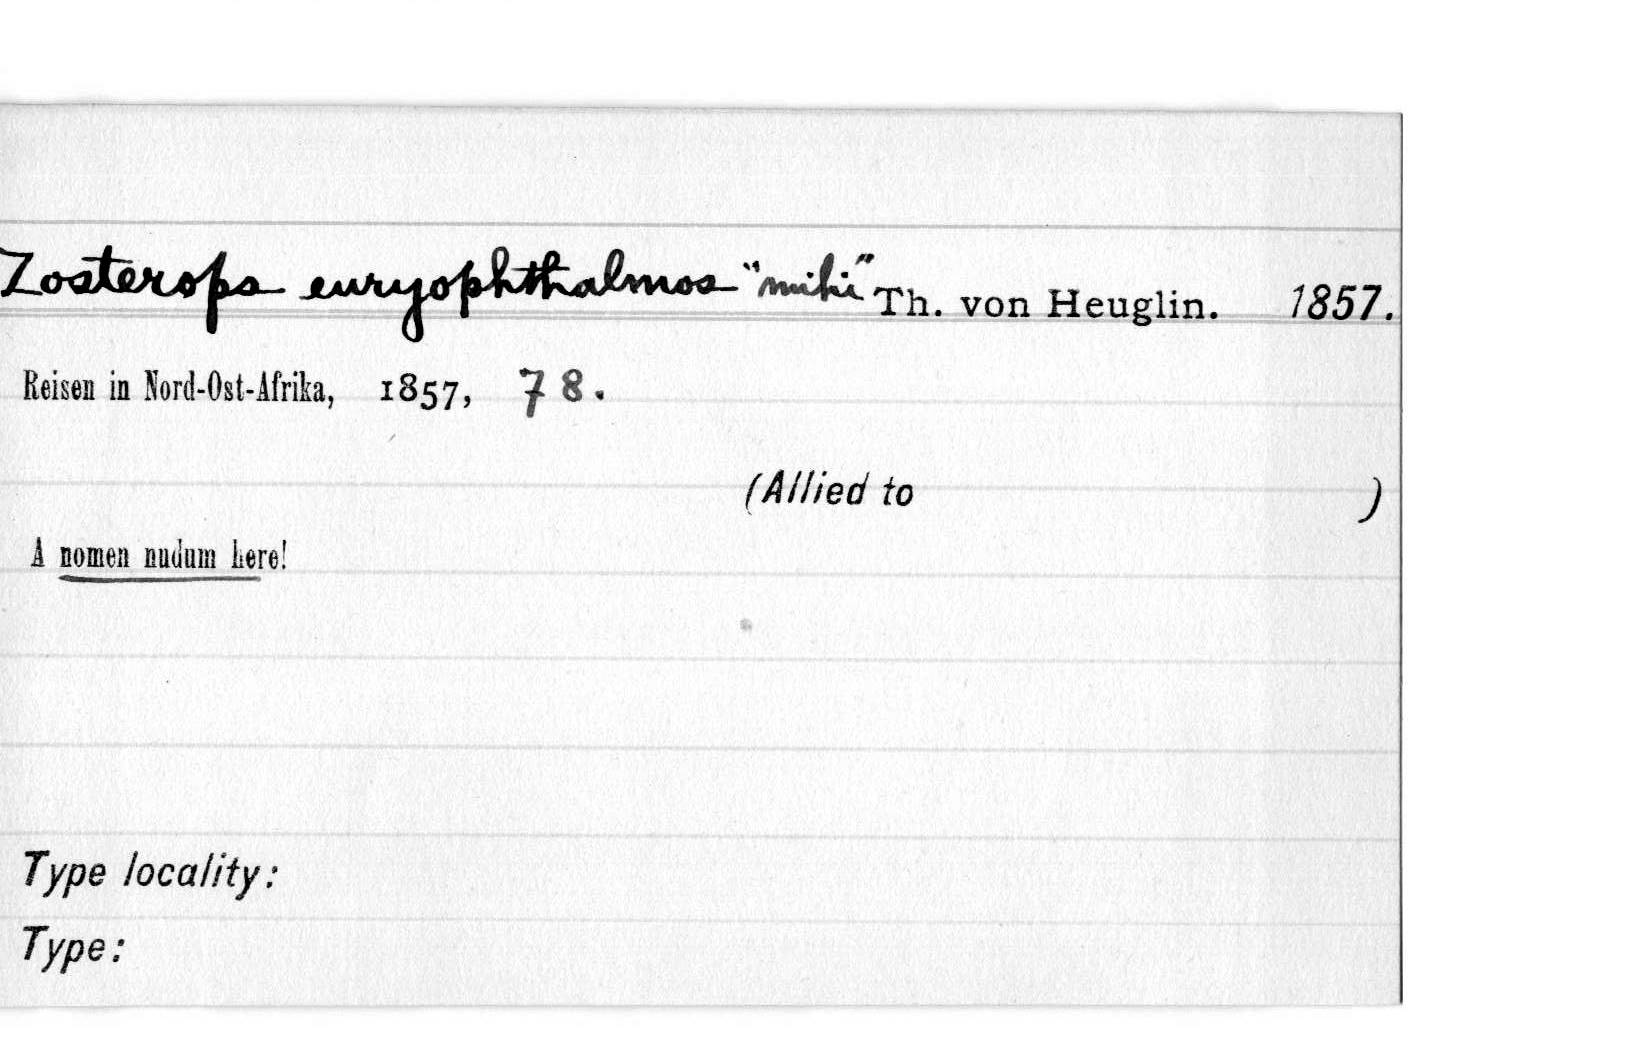 Zosterops euryophthalmos "mihi" Th. von Heuglin. 1857.
Reisen in Nord-Ost-Afrika, 1857, 78.
(Allied to )
A nomen nudum here!
Type locality:
Type: